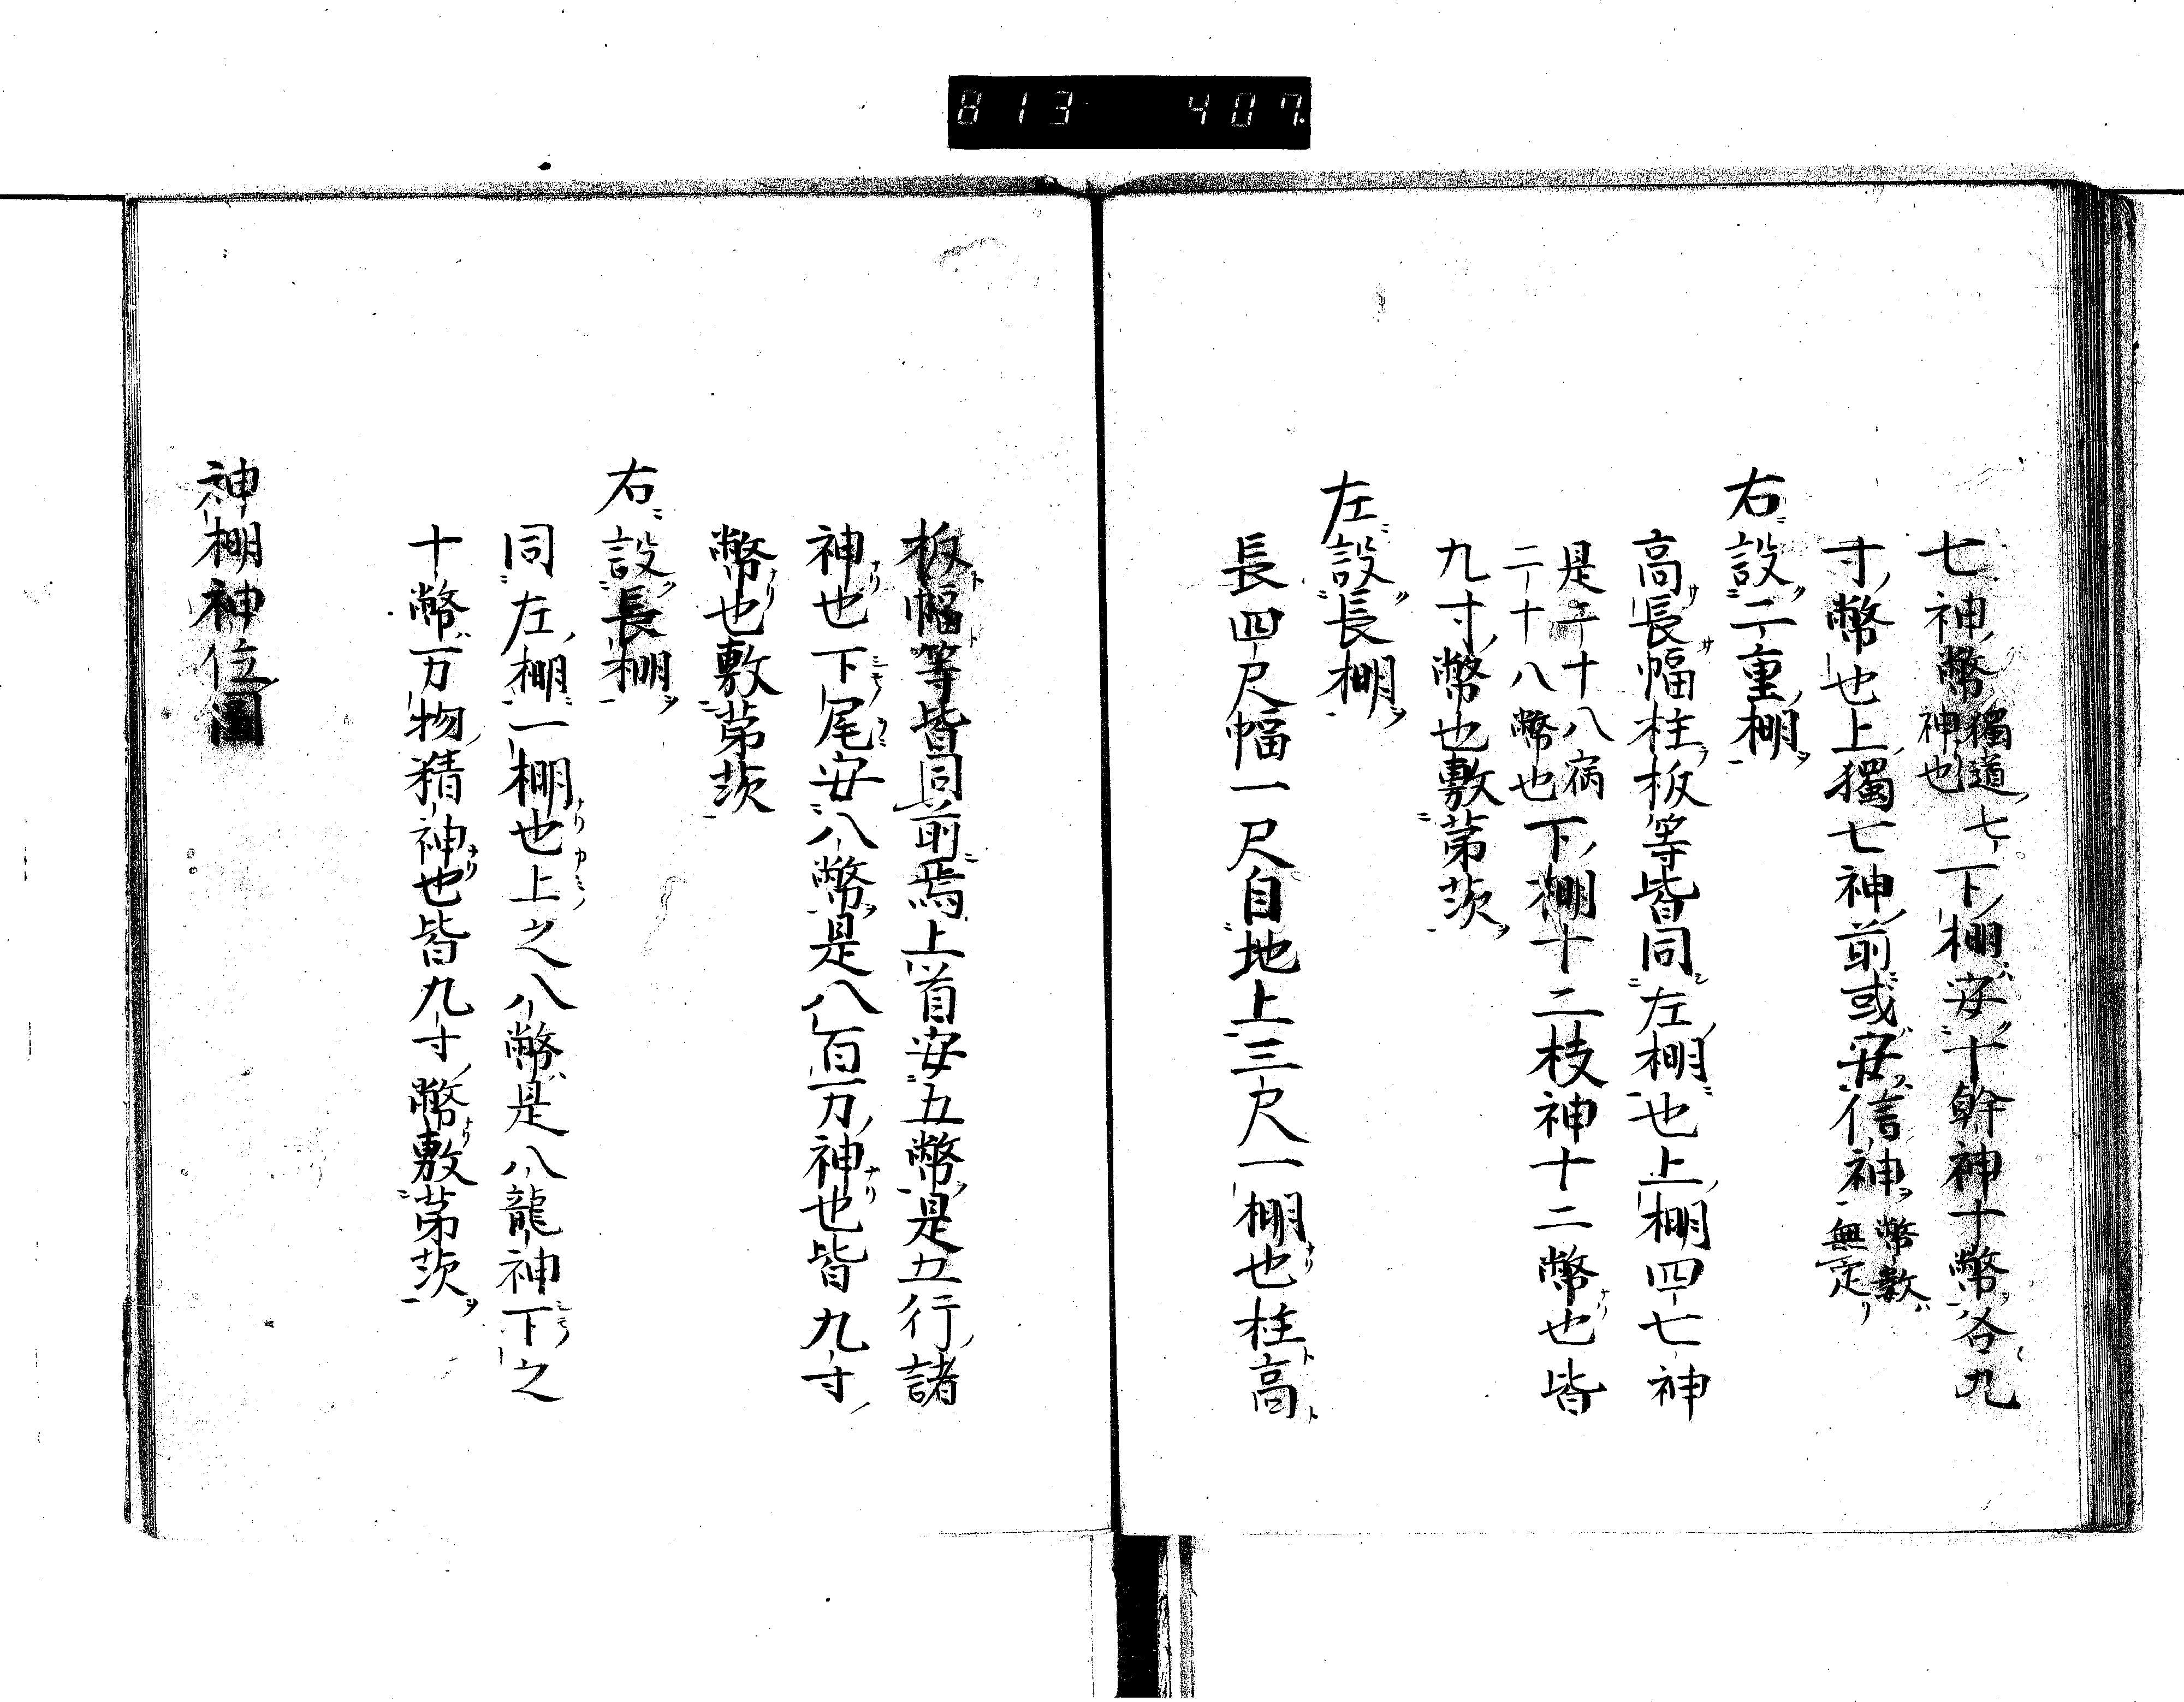 813 407
七神幣獨道七神也下棚安十幹神十幣各九
寸幣也上獨七神前或安信神幣数無定
右設二重棚
高長幅柱板等皆同左棚也上棚四七神
是二十八病二十八幣也下棚十二枝神十二幣也皆
九寸幣也敷茅茨
左設長棚
長四尺幅一尺自地上三尺一棚也柱高
板幅等皆同前焉上首安五幣是五行諸
神也下尾安八幣是八百万神也皆九寸
幣也敷茅茨
右設長棚
同左棚一棚也上之八幣是八龍神下之
十幣万物精神也皆九寸幣敷茅茨
神棚神位圖